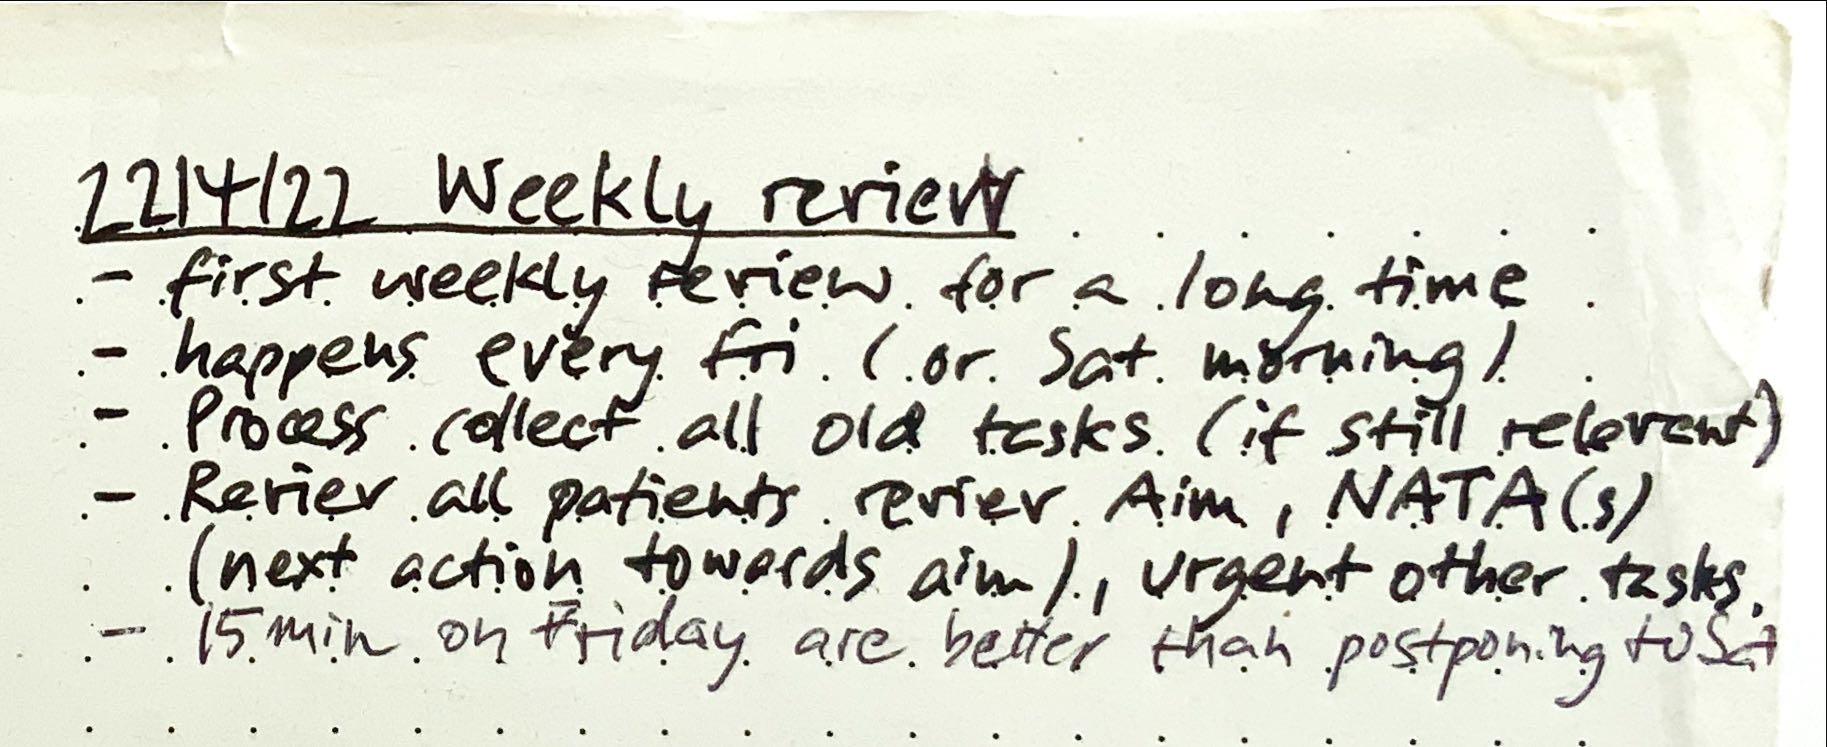 22/4/22 Weekly review
- first weekly review for a long time
- happens every fri (or Sat morning)
- Process collect all old tasks (if still relevant)
- Review all patients review Aim, NATA(s)
(next action towards aim), urgent other tasks.
- 15 min on Friday are better than postponing to Sat